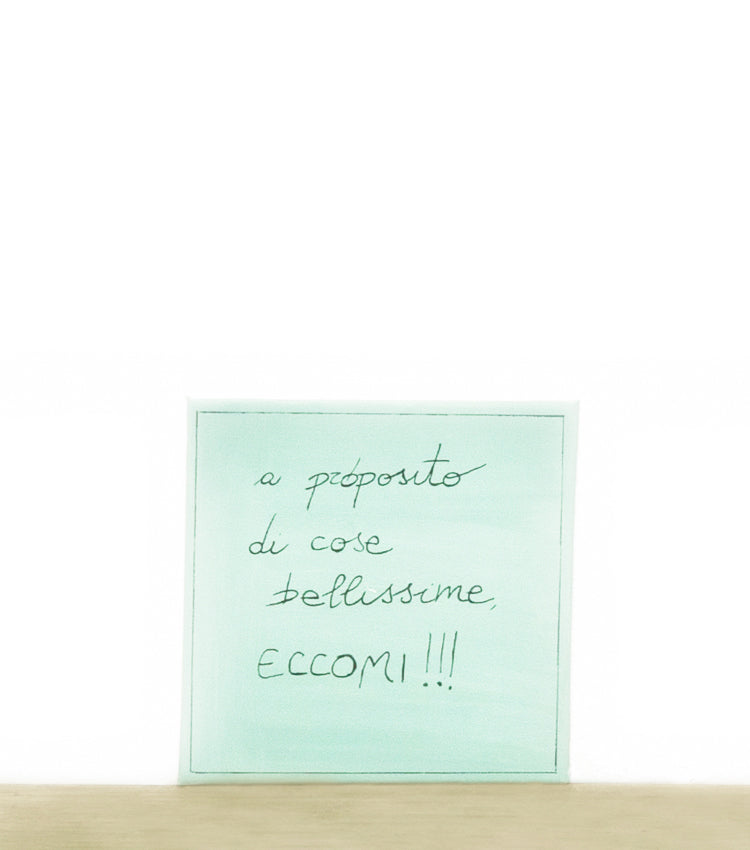 a proposito
di cose
bellissime,
ECCOMI!!!